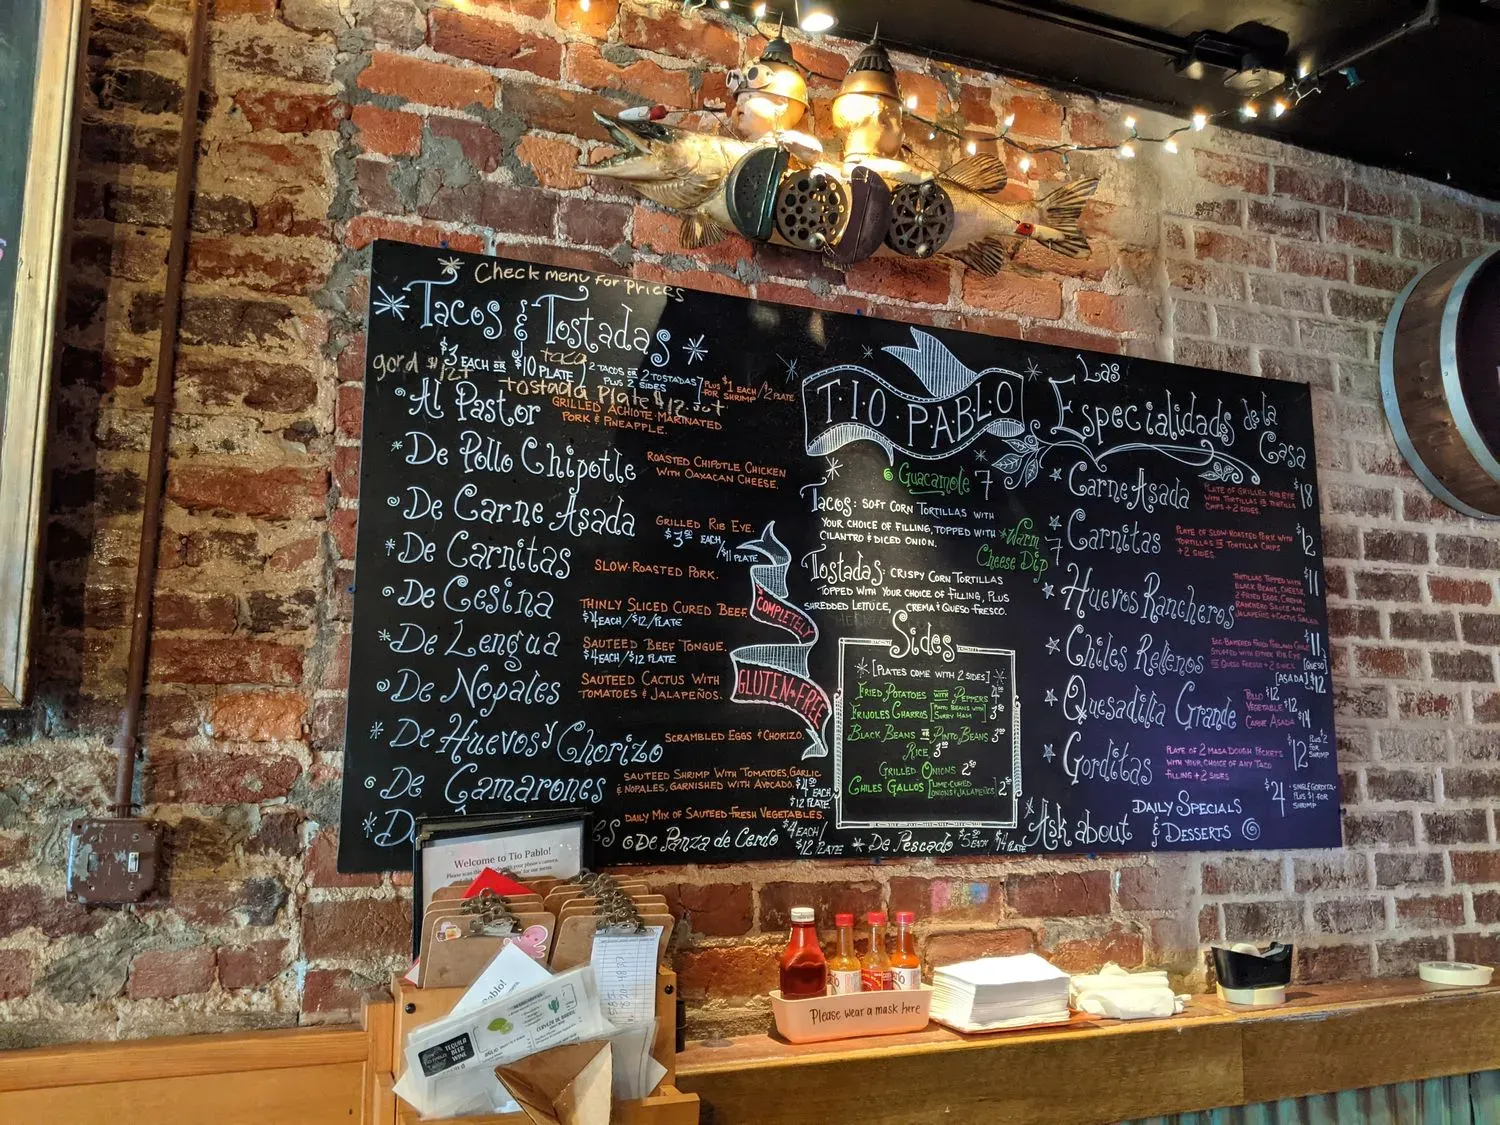 Check menu for prices
Tacos & Tostadas
$3 EACH OR $10 PLATE
2 TACOS OR 2 TOSTADAS
PLUS 2 SIDES
PLUS $1 EACH / $2 PLATE
FOR SHRIMP
taco
tostada plate $12
Al Pastor
GRILLED ACHIOTE-MARINATED
PORK & PINEAPPLE.
De Pollo Chipotle
ROASTED CHIPOTLE CHICKEN
WITH OAXACAN CHEESE.
De Carne Asada
GRILLED RIB EYE.
$3.50 EACH
/$11 PLATE
De Carnitas
SLOW-ROASTED PORK.
De Cesina
THINLY SLICED CURED BEEF.
$4 EACH /$12/PLATE
De Lengua
SAUTEED BEEF TONGUE.
$4 EACH /$12 PLATE
De Nopales
SAUTEED CACTUS WITH
TOMATOES & JALAPEÑOS.
De Huevos y Chorizo
SCRAMBLED EGGS & CHORIZO.
De Camarones
SAUTEED SHRIMP WITH TOMATOES, GARLIC
& NOPALES, GARNISHED WITH AVOCADO.
$4.50 EACH
$12 PLATE
DAILY MIX OF SAUTEED FRESH VEGETABLES.
De Panza de Cerdo
$4 EACH/
$12 PLATE
De Pescado
$5 EACH
$14 PLATE
COMPLETELY
GLUTEN-FREE
TIO PABLO
Guacamole 7
TACOS: SOFT CORN TORTILLAS WITH
YOUR CHOICE OF FILLING, TOPPED WITH
CILANTRO & DICED ONION.
Warm
Cheese Dip
7
TOSTADAS: CRISPY CORN TORTILLAS
TOPPED WITH YOUR CHOICE OF FILLING, PLUS
SHREDDED LETTUCE, CREMA & QUESO FRESCO.
Sides
[PLATES COME WITH 2 SIDES]
FRIED POTATOES WITH PEPPERS
FRIJOLES CHARROS [PINTO BEANS WITH
SURRY HAM]
BLACK BEANS OR PINTO BEANS
RICE
GRILLED ONIONS
CHILES GALLOS [LIME-CURED
ONIONS & JALAPEÑOS]
Las
Especialidads de la
Casa
Carne Asada
PLATE OF GRILLED RIB EYE
WITH TORTILLAS OR TORTILLA
CHIPS + 2 SIDES.
$18
Carnitas
PLATE OF SLOW-ROASTED PORK WITH
TORTILLAS OR TORTILLA CHIPS
+ 2 SIDES.
$12
Huevos Rancheros
TORTILLAS TOPPED WITH
BLACK BEANS, CHEESE,
2 FRIED EGGS, CREMA,
RANCHERO SAUCE AND
JALAPEÑOS + CACTUS SALAD
$11
Chiles Rellenos
STUFFED WITH EITHER RIB EYE
OR QUESO FRESCO + 2 SIDES.
$11
[QUESO]
[ASADA] $12
Quesadilla Grande
POLLO $12
VEGETABLE $12
CARNE ASADA $14
Gorditas
PLATE OF 2 MASA DOUGH POCKETS
WITH YOUR CHOICE OF ANY TACO
FILLING + 2 SIDES
$12
PLUS $2
FOR
SHRIMP
$4
SINGLE GORDITA
PLUS $1 FOR
SHRIMP
Ask about
DAILY SPECIALS
& DESSERTS
Welcome to Tio Pablo!
TEQUILA
BEER
WINE
Please wear a mask here